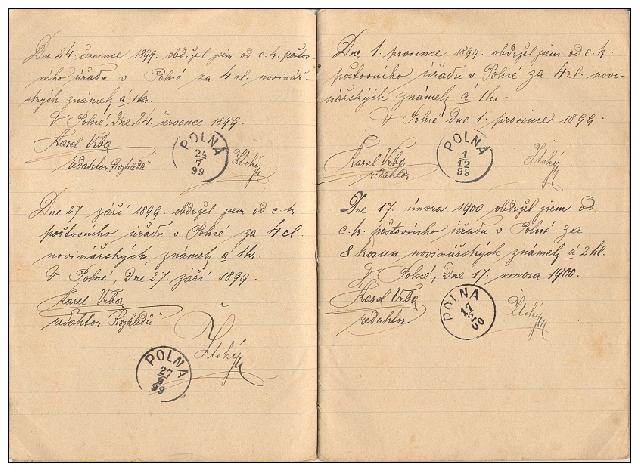 Dne 24. července 1899. obdržel jsem od c. k. poštov-
ního úřadu v Polné za 4 zl. novinář-
ských známek à 1 kr.
V Polné, dne 24. července 1899.
Karel Vrba
redaktor
POLNÁ
24
7
99
Dne 27. září 1899 obdržel jsem od c. k.
poštovního úřadu v Polné za 4 zl.
novinářských známek à 1 kr.
V Polné, dne 27. září 1899.
Karel Vrba
redaktor
POLNÁ
27
9
99
Dne 1. prosince 1899. obdržel jsem od c. k.
poštovního úřadu v Polné za 4 zl. novi-
nářských známek à 1 kr.
V Polné dne 1. prosince 1899.
Karel Vrba
redaktor
POLNÁ
1
12
99
Dne 17. února 1900 obdržel jsem od
c. k. poštovního úřadu v Polné za
8 korun novinářských známek à 2 h.
V Polné, dne 17. února 1900.
Karel Vrba
redaktor
POLNÁ
17
2
00